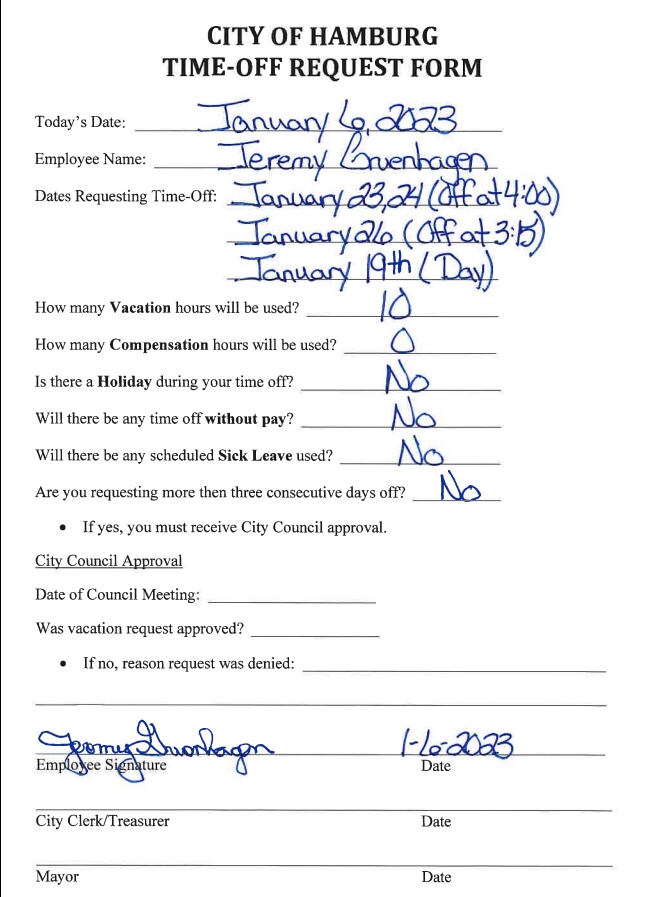 CITY OF HAMBURG
TIME-OFF REQUEST FORM
Today's Date: January 6, 2023
Employee Name: Jeremy Gruenhagen
Dates Requesting Time-Off: January 23, 24 (Off at 4:00)
January 26 (Off at 3:15)
January 19th (Day)
How many Vacation hours will be used? 10
How many Compensation hours will be used? 0
Is there a Holiday during your time off? No
Will there be any time off without pay? No
Will there be any scheduled Sick Leave used? No
Are you requesting more then three consecutive days off? No
• If yes, you must receive City Council approval.
City Council Approval
Date of Council Meeting:
Was vacation request approved?
• If no, reason request was denied:
Jeremy Gruenhagen 1-6-2023
Employee Signature Date
City Clerk/Treasurer Date
Mayor Date